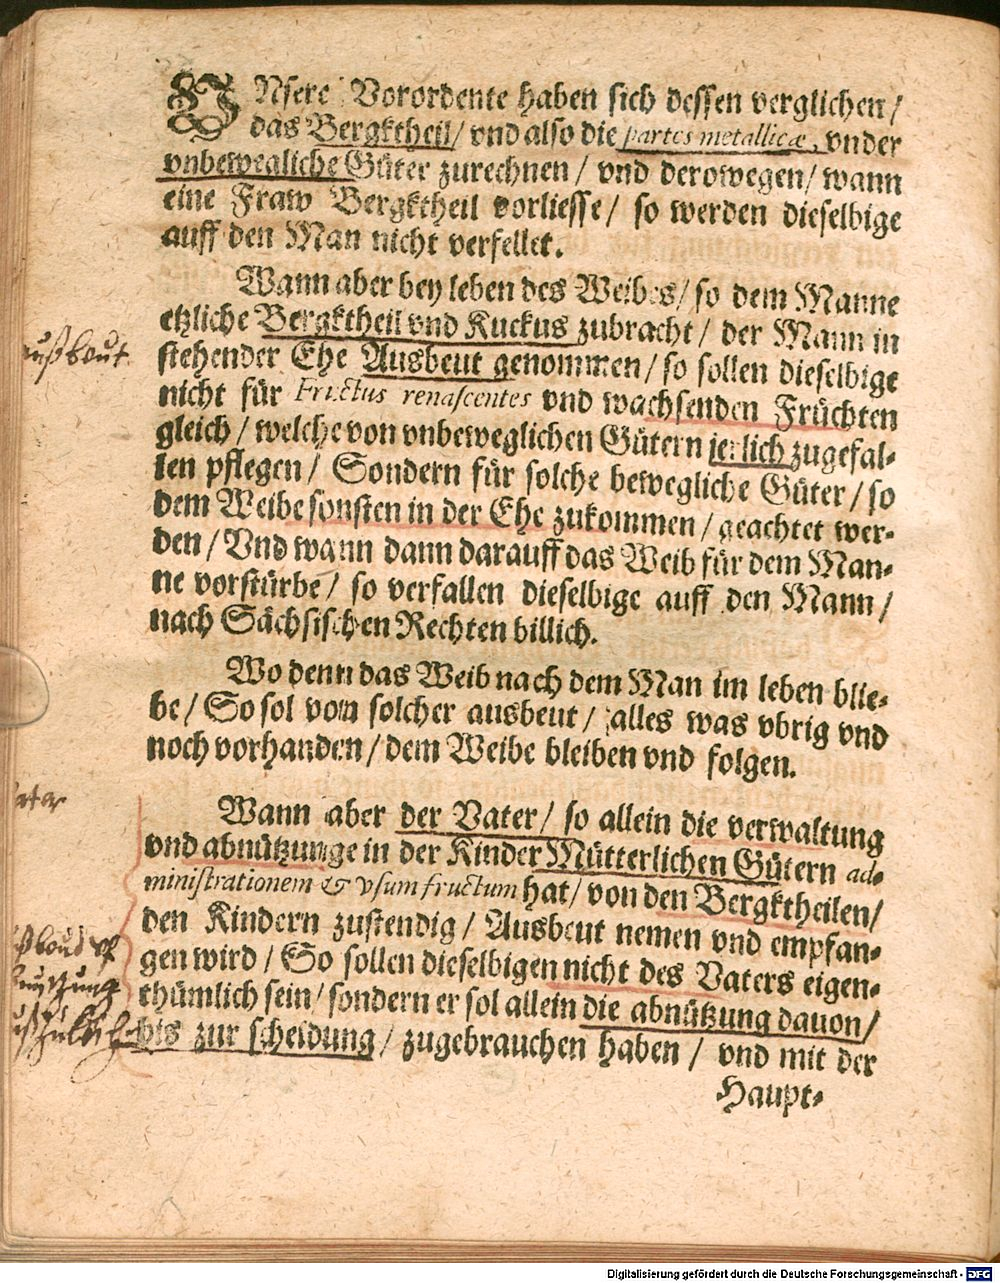 UNsere Vorordente haben sich dessen verglichen /
das Bergktheil / vnd also die partes metallicæ, vnder
vnbewegliche Güter zurechnen / vnd derowegen / wann
eine Fraw Bergktheil vorliesse / so werden dieselbige
auff den Man nicht verfellet.
Wann aber bey leben des Weibes / so dem Manne
etzliche Bergktheil vnd Kuckus zubracht / der Mann in
stehender Ehe Ausbeut genommen / so sollen dieselbige
nicht für Fructus renascentes vnd wachsenden Früchten
gleich / welche von vnbeweglichen Gütern jerlich zugefal-
len pflegen / Sondern für solche bewegliche Güter / so
dem Weibe sonsten in der Ehe zukommen / geachtet wer-
den / Vnd wann dann darauff das Weib für dem Man-
ne vorstürbe / so verfallen dieselbige auff den Mann /
nach Sächsischen Rechten billich.
Wo denn das Weib nach dem Man im leben blie-
be / So sol von solcher ausbeut / alles was vbrig vnd
noch vorhanden / dem Weibe bleiben vnd folgen.
Wann aber der Vater / so allein die verwaltung
vnd abnützunge in der Kinder Mütterlichen Gütern ad-
ministrationem & vsum fructum hat / von den Bergktheilen /
den Kindern zustendig / Ausbeut nemen vnd empfan-
gen wird / So sollen dieselbigen nicht des Vaters eigen-
thümlich sein / sondern er sol allein die abnützung dauon /
bis zur scheidung / zugebrauchen haben / vnd mit der
Haupt-
außbout
Digitalisierung gefördert durch die Deutsche Forschungsgemeinschaft - DFG